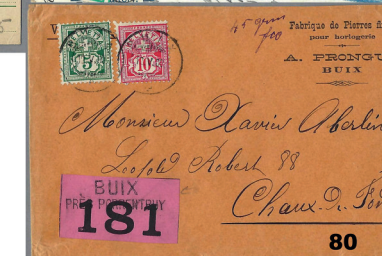 Fabrique de Pierres fi
pour horlogerie
A. PRONGU
BUIX
HELVETIA
5
HELVETIA
10
Monsieur Xavier Aberlin
Leopold Robert 88
Chaux-de-Fon
BUIX
PRÈS PORRENTRUY
181
80